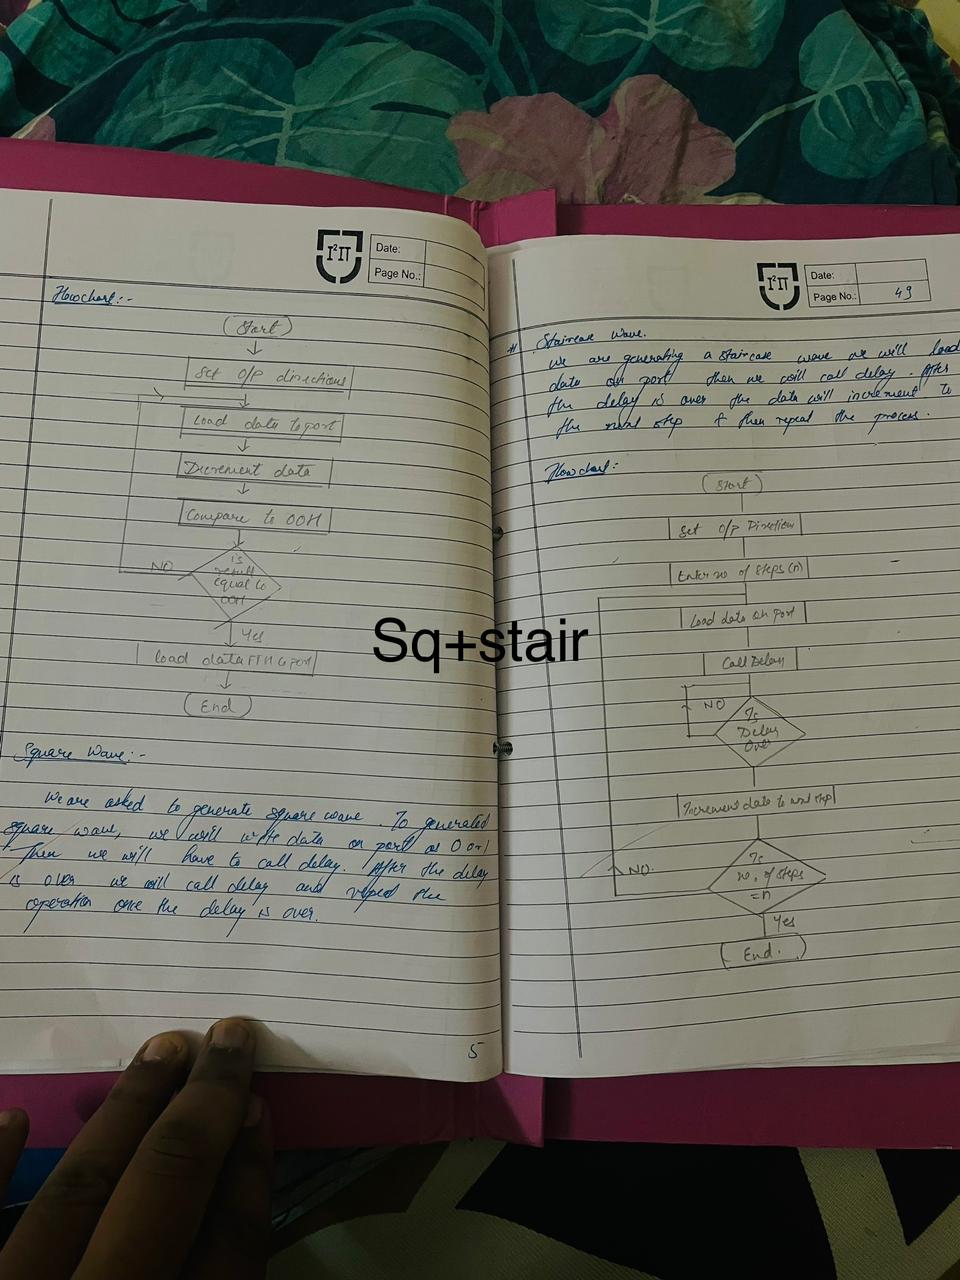 I²IT
Date:
Page No.:
Flowchart:-
Start
Set O/P directions
Load data to port
Decrement data
Compare to 00H
NO
is
result
equal to
00H
Yes
load data FFH to port
End
Square Wave:-
We are asked to generate square wave. To generated
square wave, we will write data on port as 0 or 1
Then we will have to call delay. After the delay
is over we will call delay and repeat the
operation once the delay is over.
5
Sq+stair
I²IT
Date:
Page No.: 49
# Staircase Wave.
we are generating a staircase wave we will load
data on port then we will call delay. After
the delay is over the data will increment to
the next step & then repeat the process.
Flowchart:
Start
Set O/P Direction
Enter no of steps (n)
Load data on port
Call Delay
NO
Is
Delay
Over
Increment data to next step
NO.
Is
no. of steps
=n
Yes
End.